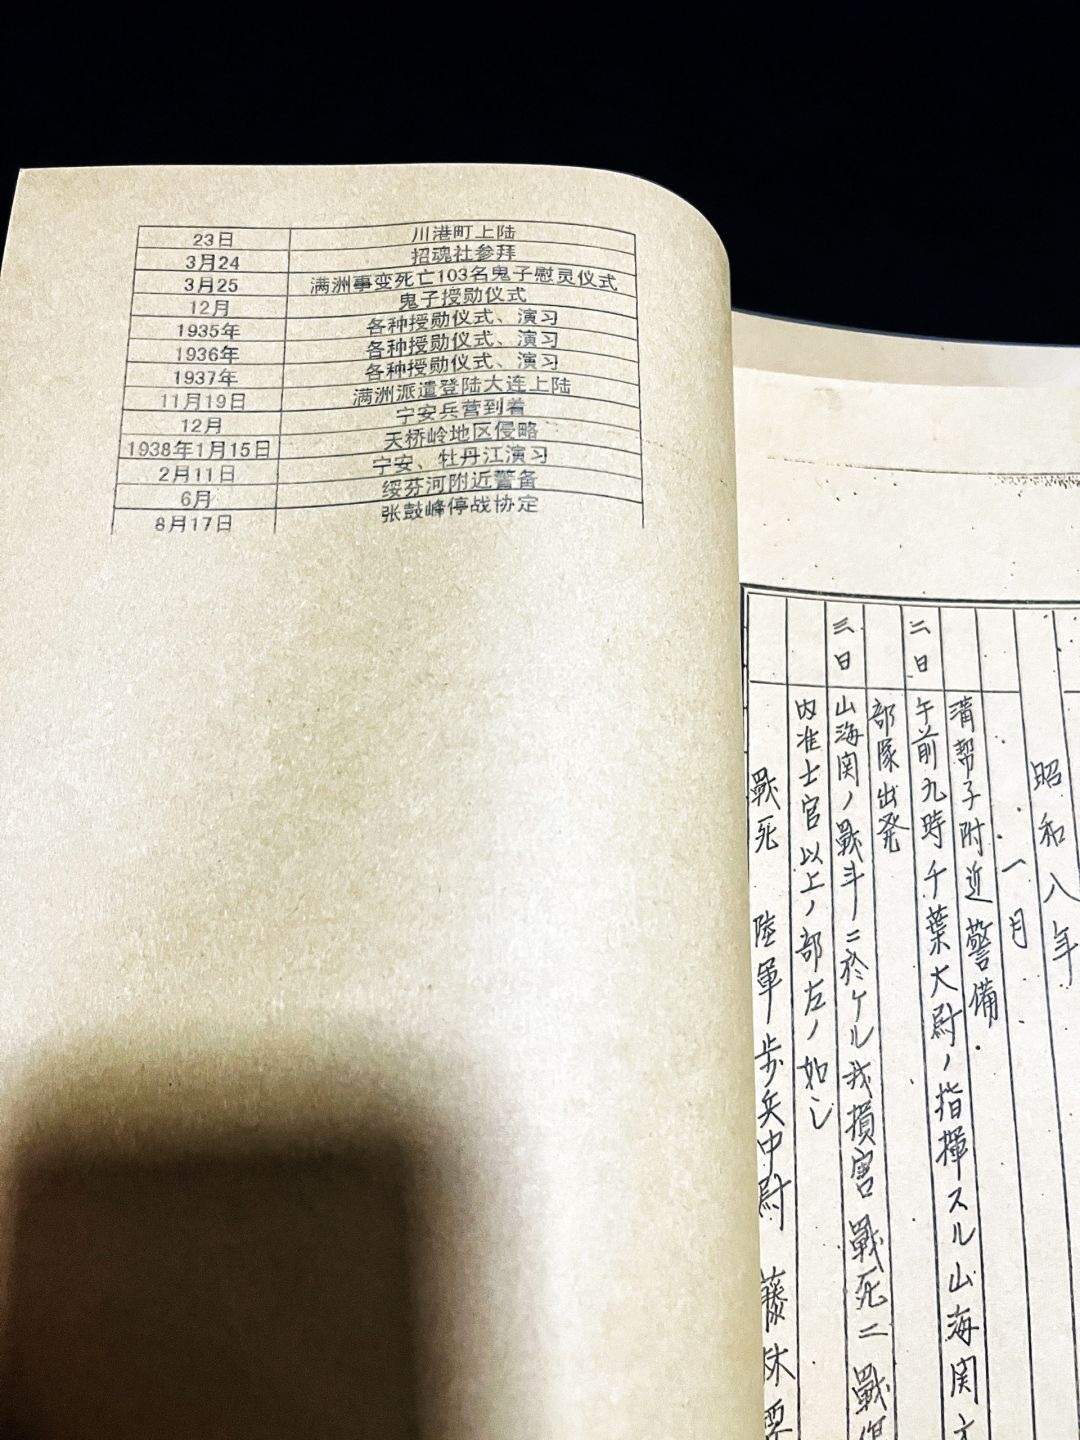 23日 川港町上陆
3月24 招魂社参拜
3月25 满洲事变死亡103名鬼子慰灵仪式
12月 鬼子授勋仪式
1935年 各种授勋仪式、演习
1936年 各种授勋仪式、演习
1937年 各种授勋仪式、演习
11月19日 满洲派遣登陆大连上陆
12月 宁安兵营到着
1938年1月15日 天桥岭地区侵略
2月11日 宁安、牡丹江演习
6月 绥芬河附近警备
8月17日 张鼓峰停战协定
昭和八年
一月
溝帮子附近警備
二日 午前九時千葉大尉ノ指揮スル山海関
部隊出発
三日 山海関ノ戰斗ニ於ケル我損害戰死二戰傷
内准士官以上ノ部左ノ如シ
戰死 陸軍歩兵中尉 藤